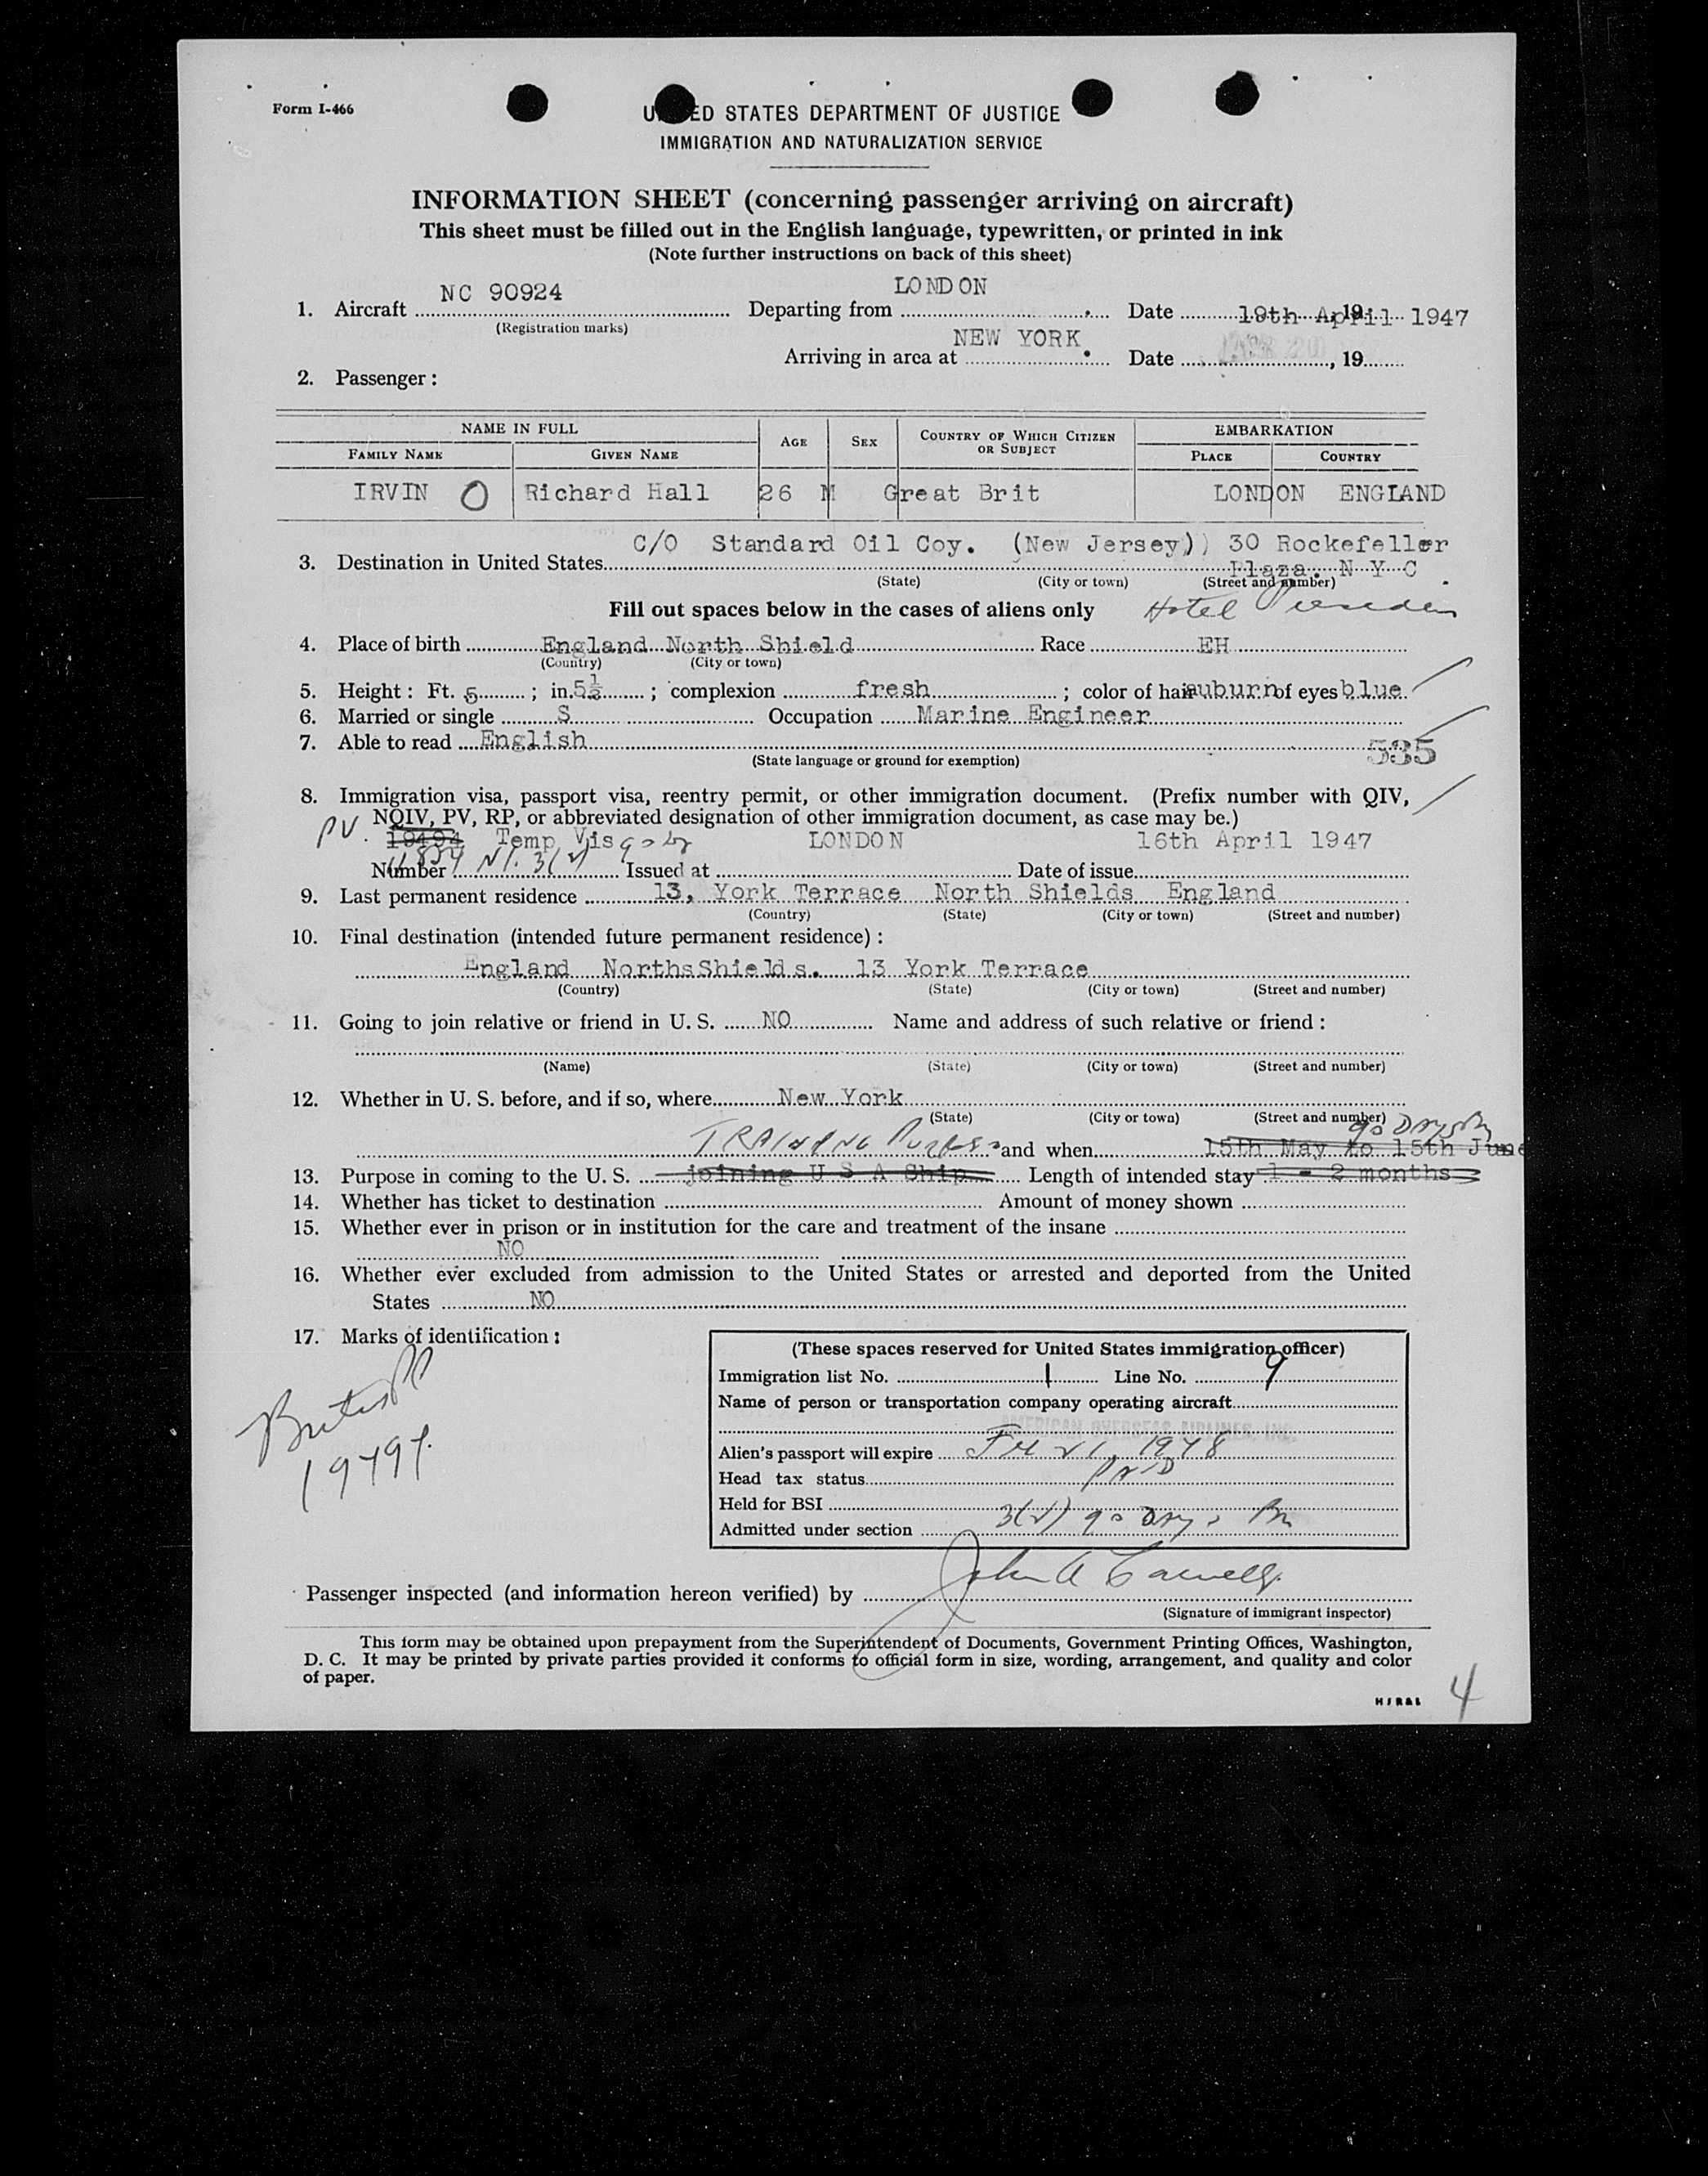 Form I-466
UNITED STATES DEPARTMENT OF JUSTICE
IMMIGRATION AND NATURALIZATION SERVICE
INFORMATION SHEET (concerning passenger arriving on aircraft)
This sheet must be filled out in the English language, typewritten, or printed in ink
(Note further instructions on back of this sheet)
1. Aircraft NC 90924 Departing from LONDON Date 19th April 1947
(Registration marks)
Arriving in area at NEW YORK Date , 19
2. Passenger:
NAME IN FULL AGE SEX COUNTRY OF WHICH CITIZEN OR SUBJECT EMBARKATION
FAMILY NAME GIVEN NAME PLACE COUNTRY
IRVIN O Richard Hall 26 M Great Brit LONDON ENGLAND
C/O Standard Oil Coy. (New Jersey)) 30 Rockefeller
3. Destination in United States Plaza. N Y C
(State) (City or town) (Street and number)
Fill out spaces below in the cases of aliens only Hotel
4. Place of birth England North Shield Race EH
(Country) (City or town)
5. Height: Ft. 5 ; in. 5½ ; complexion fresh ; color of hair auburn of eyes blue
6. Married or single S Occupation Marine Engineer
7. Able to read English
(State language or ground for exemption) 535
8. Immigration visa, passport visa, reentry permit, or other immigration document. (Prefix number with QIV,
PV. NQIV, PV, RP, or abbreviated designation of other immigration document, as case may be.)
19494 Temp Vis LONDON 16th April 1947
Number Issued at Date of issue
9. Last permanent residence 13, York Terrace North Shields England
(Country) (State) (City or town) (Street and number)
10. Final destination (intended future permanent residence):
England NorthsShields. 13 York Terrace
(Country) (State) (City or town) (Street and number)
11. Going to join relative or friend in U. S. NO Name and address of such relative or friend:
(Name) (State) (City or town) (Street and number)
12. Whether in U. S. before, and if so, where New York
(State) (City or town) (Street and number)
TRAINING and when 15th May to 15th June
13. Purpose in coming to the U. S. joining U S A Ship Length of intended stay 1 - 2 months
14. Whether has ticket to destination Amount of money shown
15. Whether ever in prison or in institution for the care and treatment of the insane
NO
16. Whether ever excluded from admission to the United States or arrested and deported from the United
States NO
17. Marks of identification:
(These spaces reserved for United States immigration officer)
Immigration list No. 1 Line No. 9
Name of person or transportation company operating aircraft
AMERICAN OVERSEAS AIRLINES, INC.
Alien's passport will expire 1948
Head tax status
Held for BSI
Admitted under section 3(2) 90 Days
Passenger inspected (and information hereon verified) by John A
(Signature of immigrant inspector)
This form may be obtained upon prepayment from the Superintendent of Documents, Government Printing Offices, Washington,
D. C. It may be printed by private parties provided it conforms to official form in size, wording, arrangement, and quality and color
of paper.
4